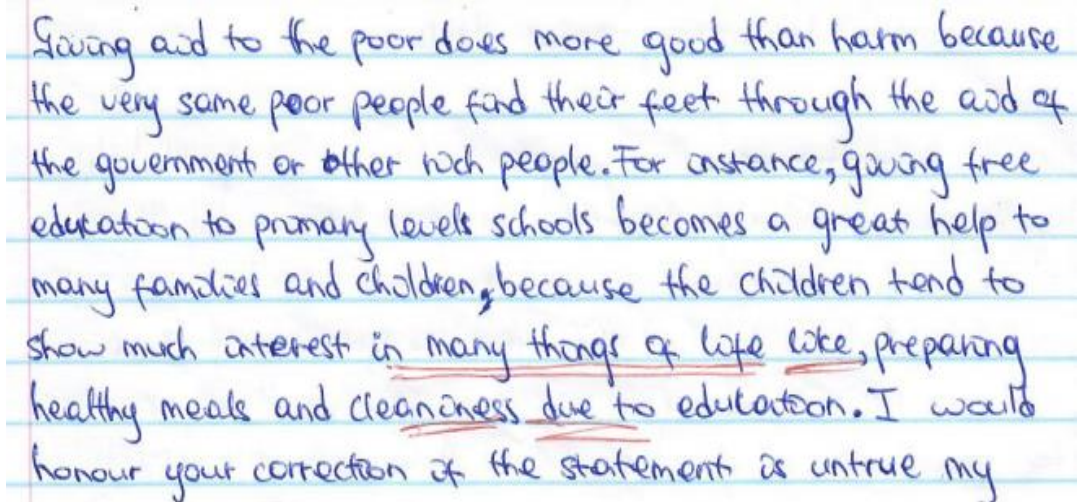 Giving aid to the poor does more good than harm because
the very same poor people find their feet through the aid of
the government or other rich people. For instance, giving free
education to primary levels schools becomes a great help to
many families and children, because the children tend to
show much interest in many things of life like, preparing
healthy meals and cleaniness due to education. I would
honour your correction if the statement is untrue my